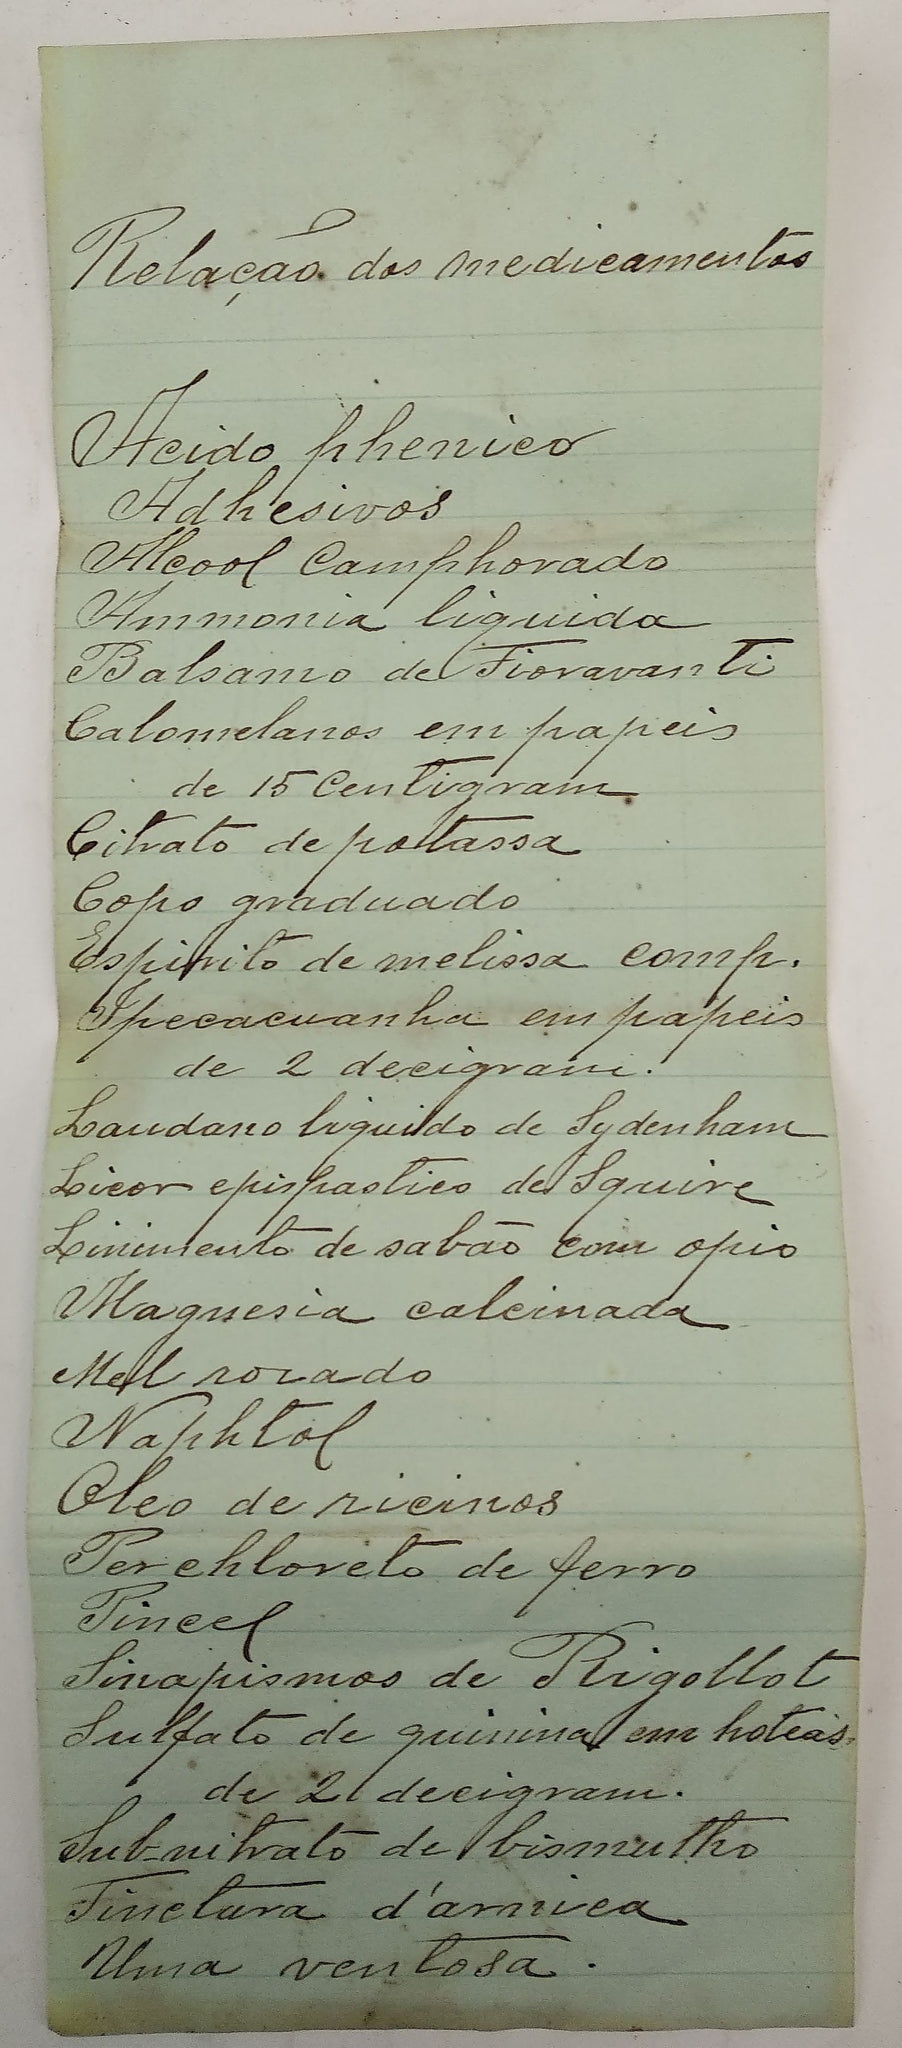 Relação dos medicamentos
Acido phenico
Adhesivos
Alcool Camphorado
Ammonia liquida
Balsamo de Fioravanti
Calomelanos em papeis
de 15 Centigram
Citrato de potassa
Copo graduado
Espirito de melissa comp.
Ipecacuanha em papeis
de 2 decigram.
Laudano liquido de Sydenham
Licor epispastico de Squire
Linimento de sabão com opio
Magnesia calcinada
Mel rozado
Naphtol
Oleo de ricinos
Perchloreto de ferro
Pincel
Sinapismos de Rigollot
Sulfato de quinina em hoteas
de 2 decigram.
Sub-nitrato de bismutho
Tinctura d'arnica
Uma ventosa.